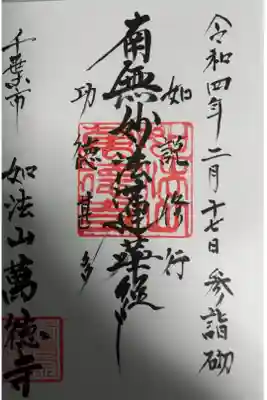 令和四年二月十七日参詣砌
如説修行
南無妙法蓮華経
功徳甚多
千葉市 如法山萬徳寺